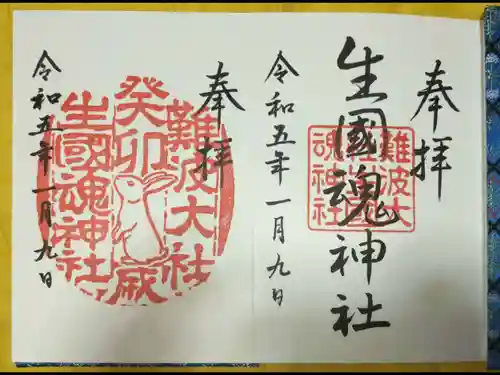 奉拝
生國魂神社
難波大社
生國魂神社
令和五年一月九日
奉拝
難波大社
癸卯歳
生國魂神社
令和五年一月九日